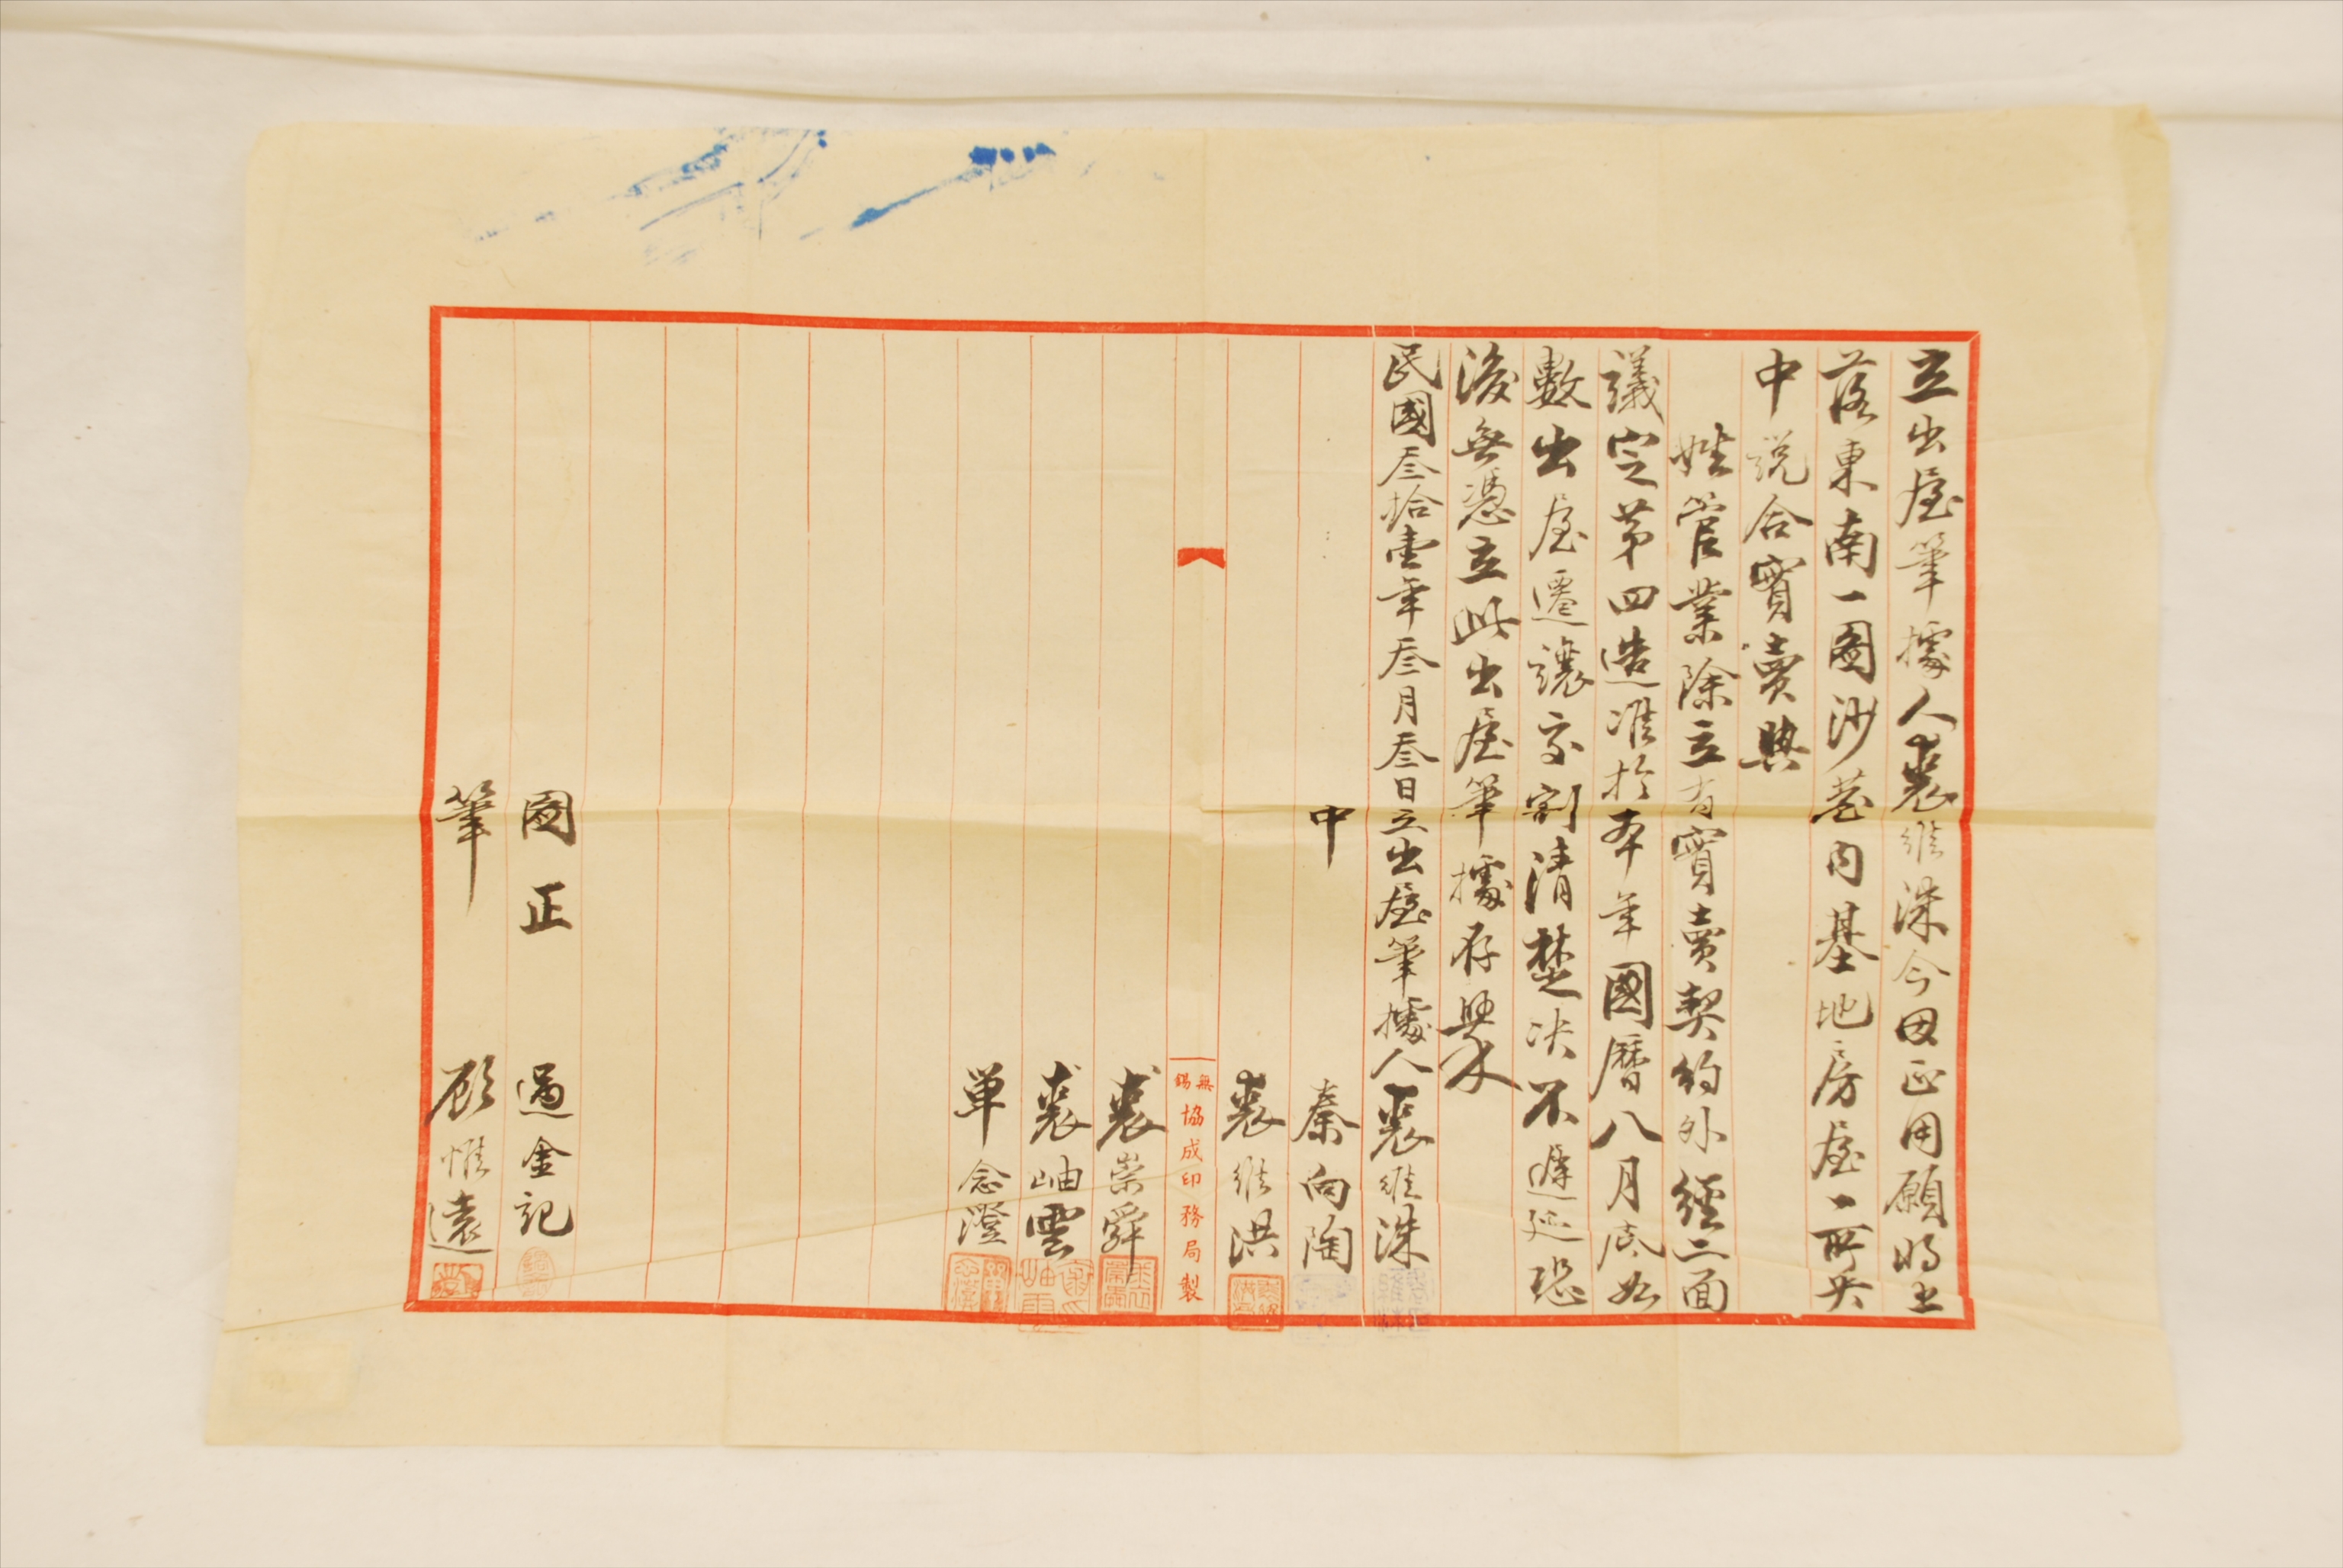 立出屋筆據人裘維洙今因正用願將坐
落東南一圖沙巷內基地房屋一所央
中説合實賣與
姓管業除立有實賣契約外經二面
議定第四造准於本年國曆八月底如
數出屋遷讓交割清楚决不遲延恐
後無憑立此出屋筆據存照
民國叁拾壹年叁月叁日立出屋筆據人裘維洙
中 秦向陶
裘維洪
無錫協成印務局製
裘崇舜
裘岫雲
単念澄
圖正 過金記
筆 顧惟遠